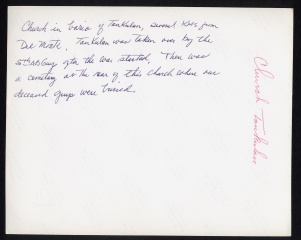 Church in bario of Tankulan, several kms from
Del Monte. Tankulan was taken over by the
5th AB Grp after the war started. There was
a cemetery at the rear of this church where our
deceased guys were buried.
Church - Tankulan